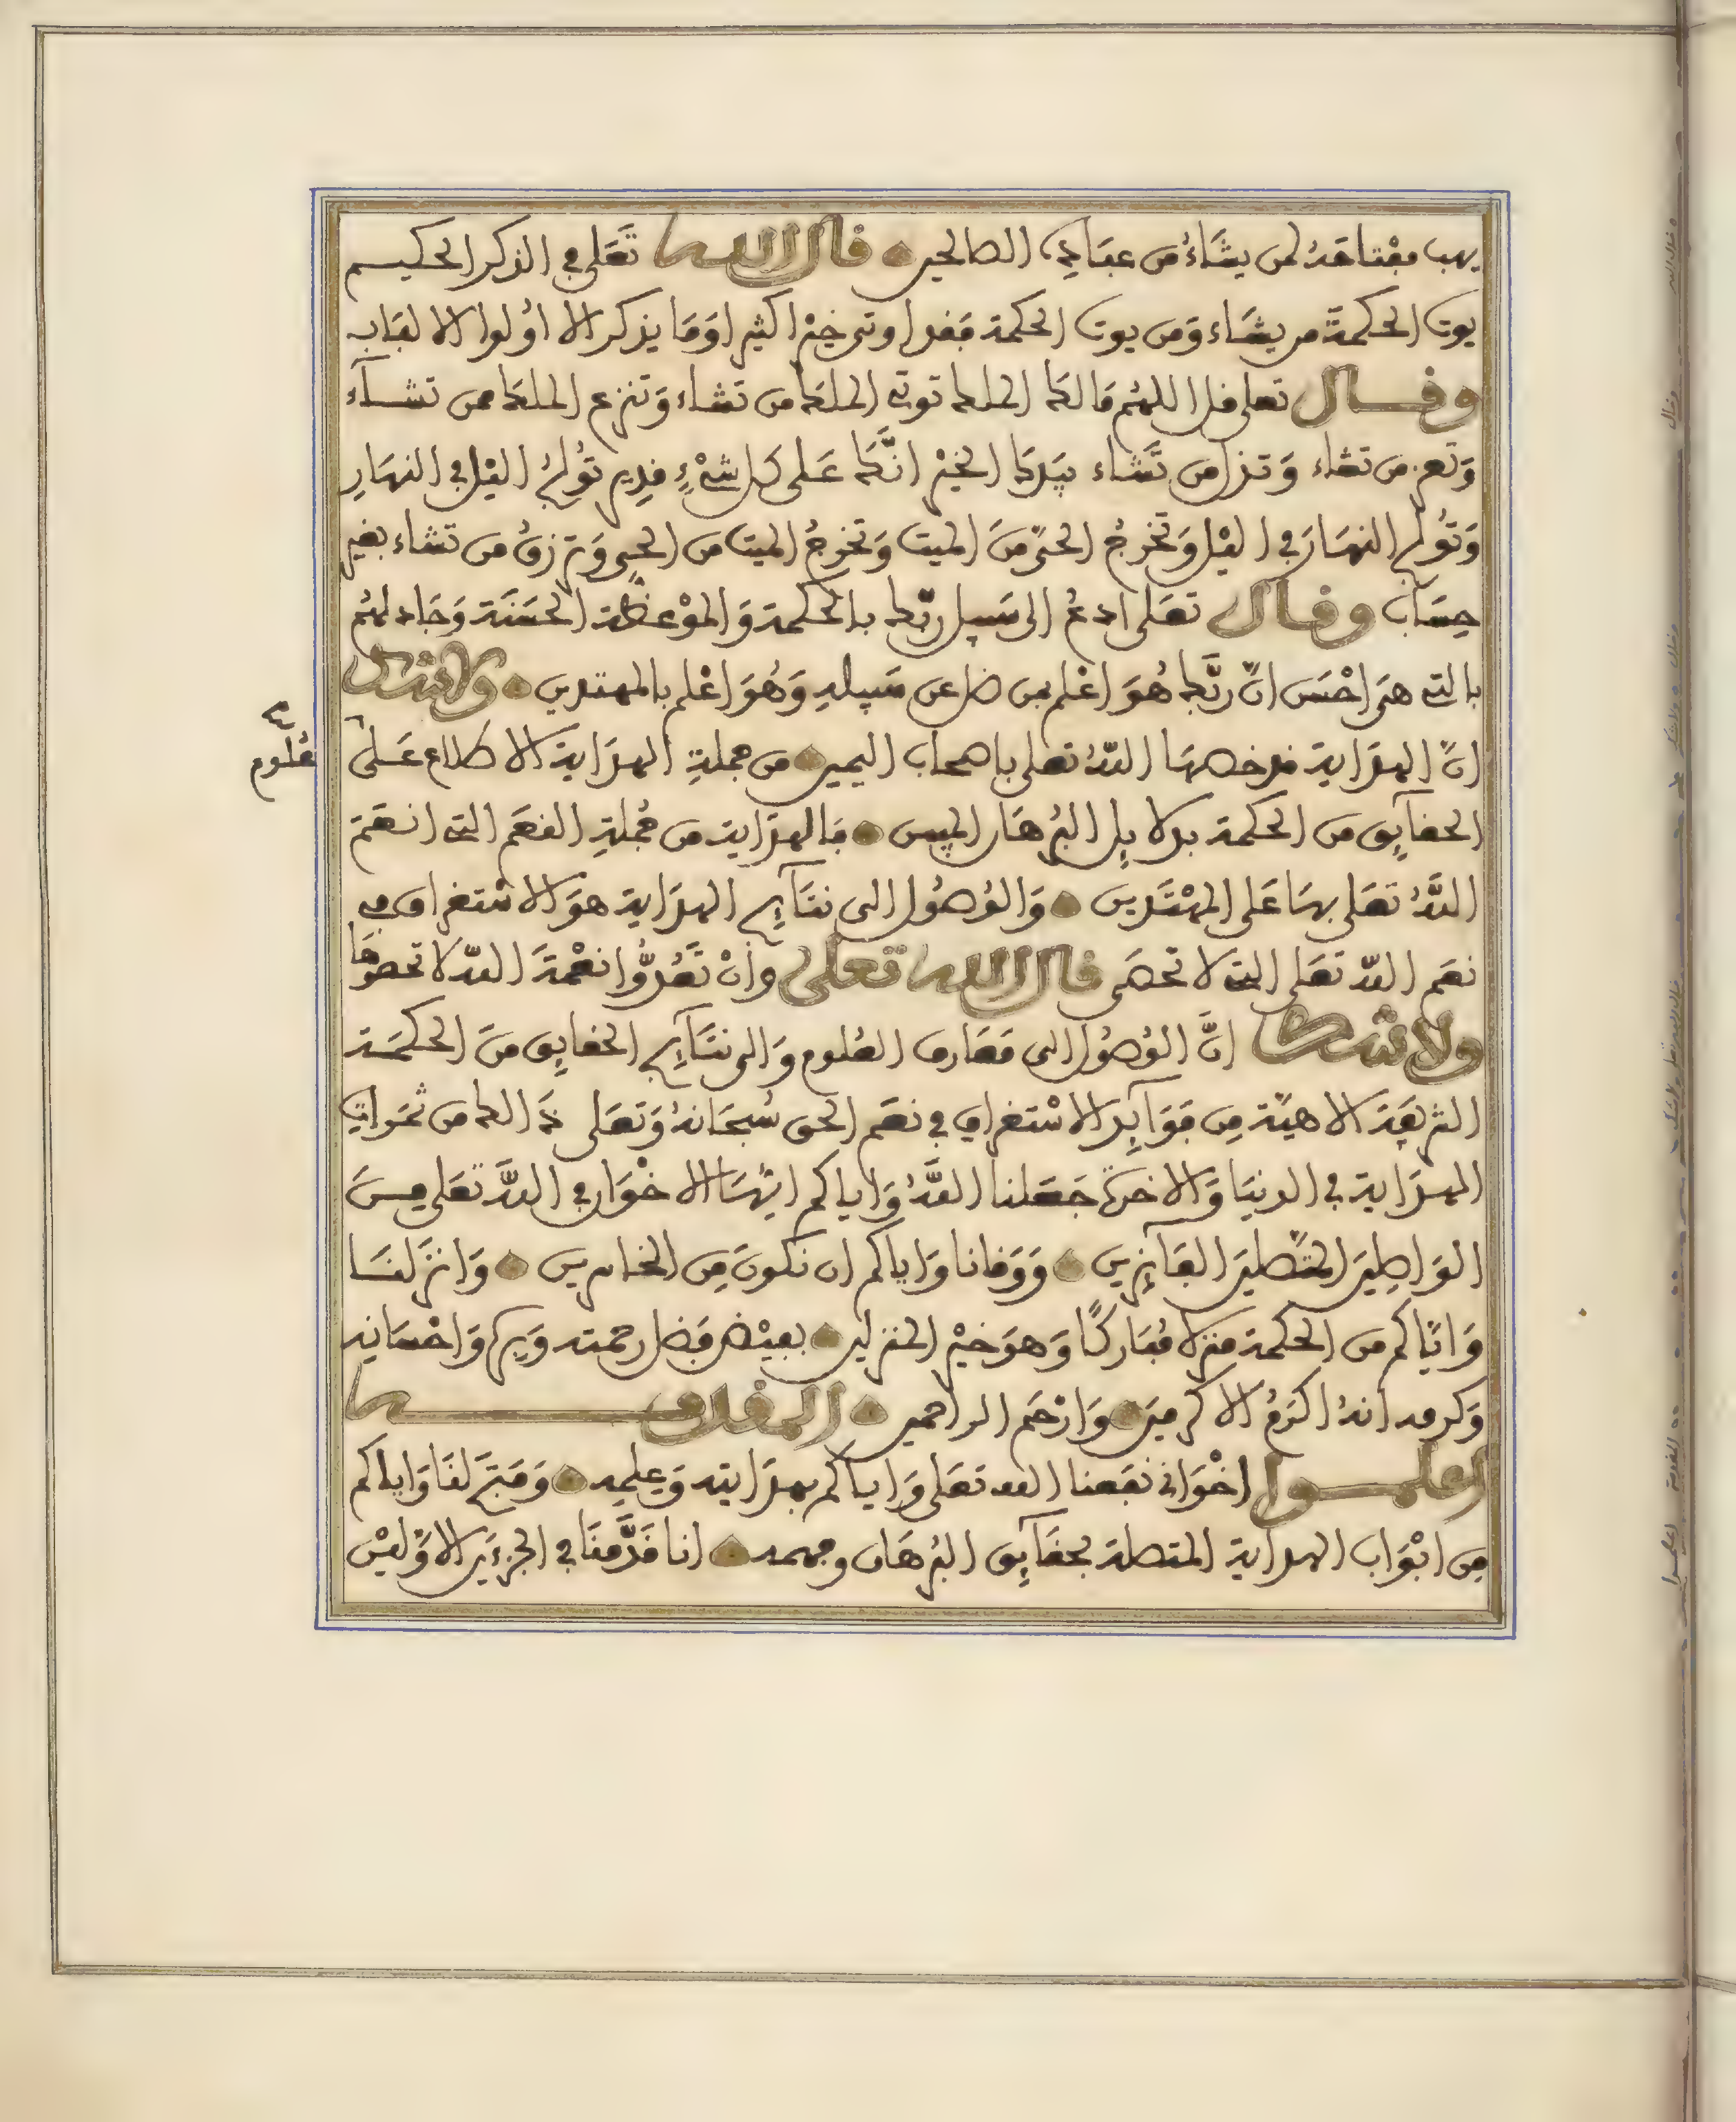 يهب مفتاحَهُ لمن يشَاءُ من عبَادِهِ الصالحين قال الله تَعَلى في الذكر الحكيم
يوت الحكمةَ من يشَاء وَمن يوت الحكمة فَقد اوتي خيْرا كثيرا وَمَا يذكر الا أولوا الالبَاب
وقال تعلى قل اللهُم مَالكَ الملك توتي الملكَ من تشاء وَتنزع الملكَ ممن تشآء
وَتعز من تشاء وَتذل من تَشاء بيَدكَ الخيْر انَّكَ عَلى كل شيْءٍ قدِير تُولِجُ اليْل في النهَارِ
وَتُولج النهَارَ في اليْل وَتخرجُ الحيَّ منَ الميت وَتخرجُ الميت من الحيِ وَترزقُ من تشاء بغير
حِسَاب وقال تعَلى ادعُ الى سَبيل ربّك بالحكمة وَالموْعظة الحسَنَة وَجَادلهُم
بالتي هيَ احْسَن انَّ ربَّك هُوَ اعْلم بمن ضل عن سَبيلهِ وَهُوَ اعْلم بالمهتدين ولا شك
انَّ الهدَاية قد خصهَا اللهُ تعلى باصحاب اليمين من جملةِ الهدَاية الاطلاع عَلى
عُلوم
الحقآيِق من الحكمة بدلايِل البُرهَان المبين فالهدَاية من جُملةِ النعَم التي انعَمَ
اللهُ تعَلى بهَا عَلى المهْتَدين وَالوُصُول الى نتَآيِج الهدَاية هوَ الاسْتغراق في
نعَم الله تعَلى التي لا تحصَى قال الله تعلى وانْ تَعُدُّوا نعْمةَ الله لا تحصوهَا
ولا شك انَّ الوُصُول الى مَعَارف العُلوم وَالى نتَآيِج الحقايِق منَ الحكمَة
الشريفَة الالاهيَّة مِن فوَآيِد الاسْتغراق في نعَم الحق سُبحَانهُ وَتعَلى ذَالك من ثمَرات
الهدَاية في الدنيَا وَالاخرة جَعَلنا اللهُ وَاياكم ايُّهَا الاخْوَان في اللهِ تعَلى منَ
الوَاصِلينَ المتَّصلينَ الفَآيِزين وَوَقانا وَاياكم ان نكونَ مِن الخاسرين وَانزَلنَا
وَايَّاكم من الحكمة منزلا مُبَاركًا وَهوَ خيْر المنزلين بفيْض فضل رحمته وَبركم وَاحْسَانِه
وَكرمه انهُ اكرَمُ الاكرمينَ وَارْحَم الراحمين المقلاة
اعلموا اخْوَاني نفَعنا الله تعَلى وَاياكم بهدَايته وَعِلمِه وَفتحَ لنَا وَاياكم
مِن ابْوَاب الهداية المتصلة بحقآيِق البُرهَان وفهمه انا قدَّمنَا في الجزءَين الاوَّليْن